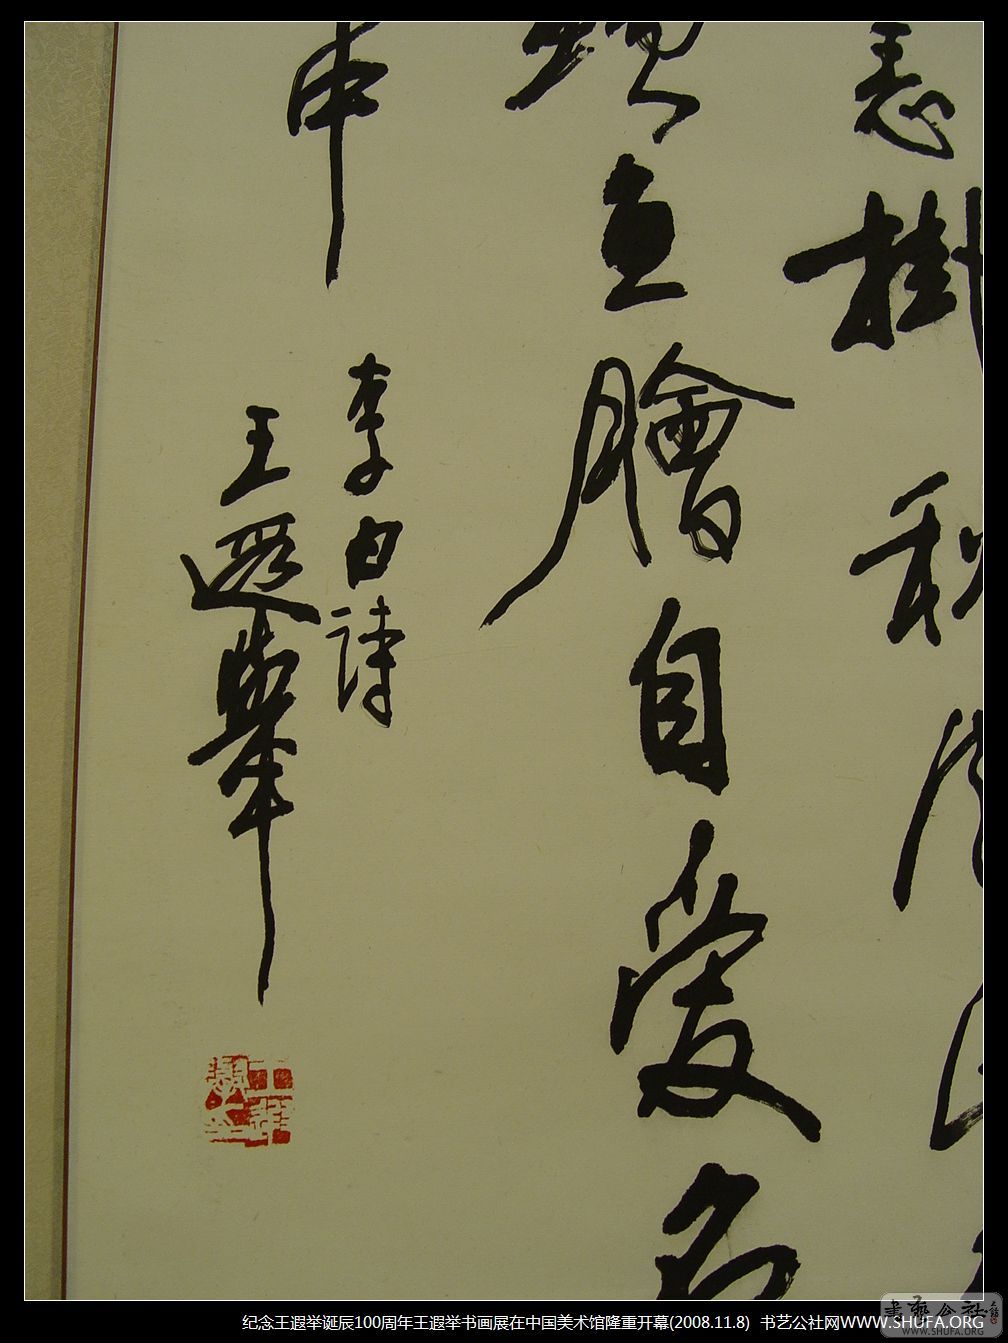 恙掛秋風
魚膾自愛名
中
李白詩
王遐舉
纪念王遐举诞辰100周年王遐举书画展在中国美术馆隆重开幕(2008.11.8) 书艺公社网WWW.SHUFA.ORG
书艺公社
WWW.SHUFA.ORG